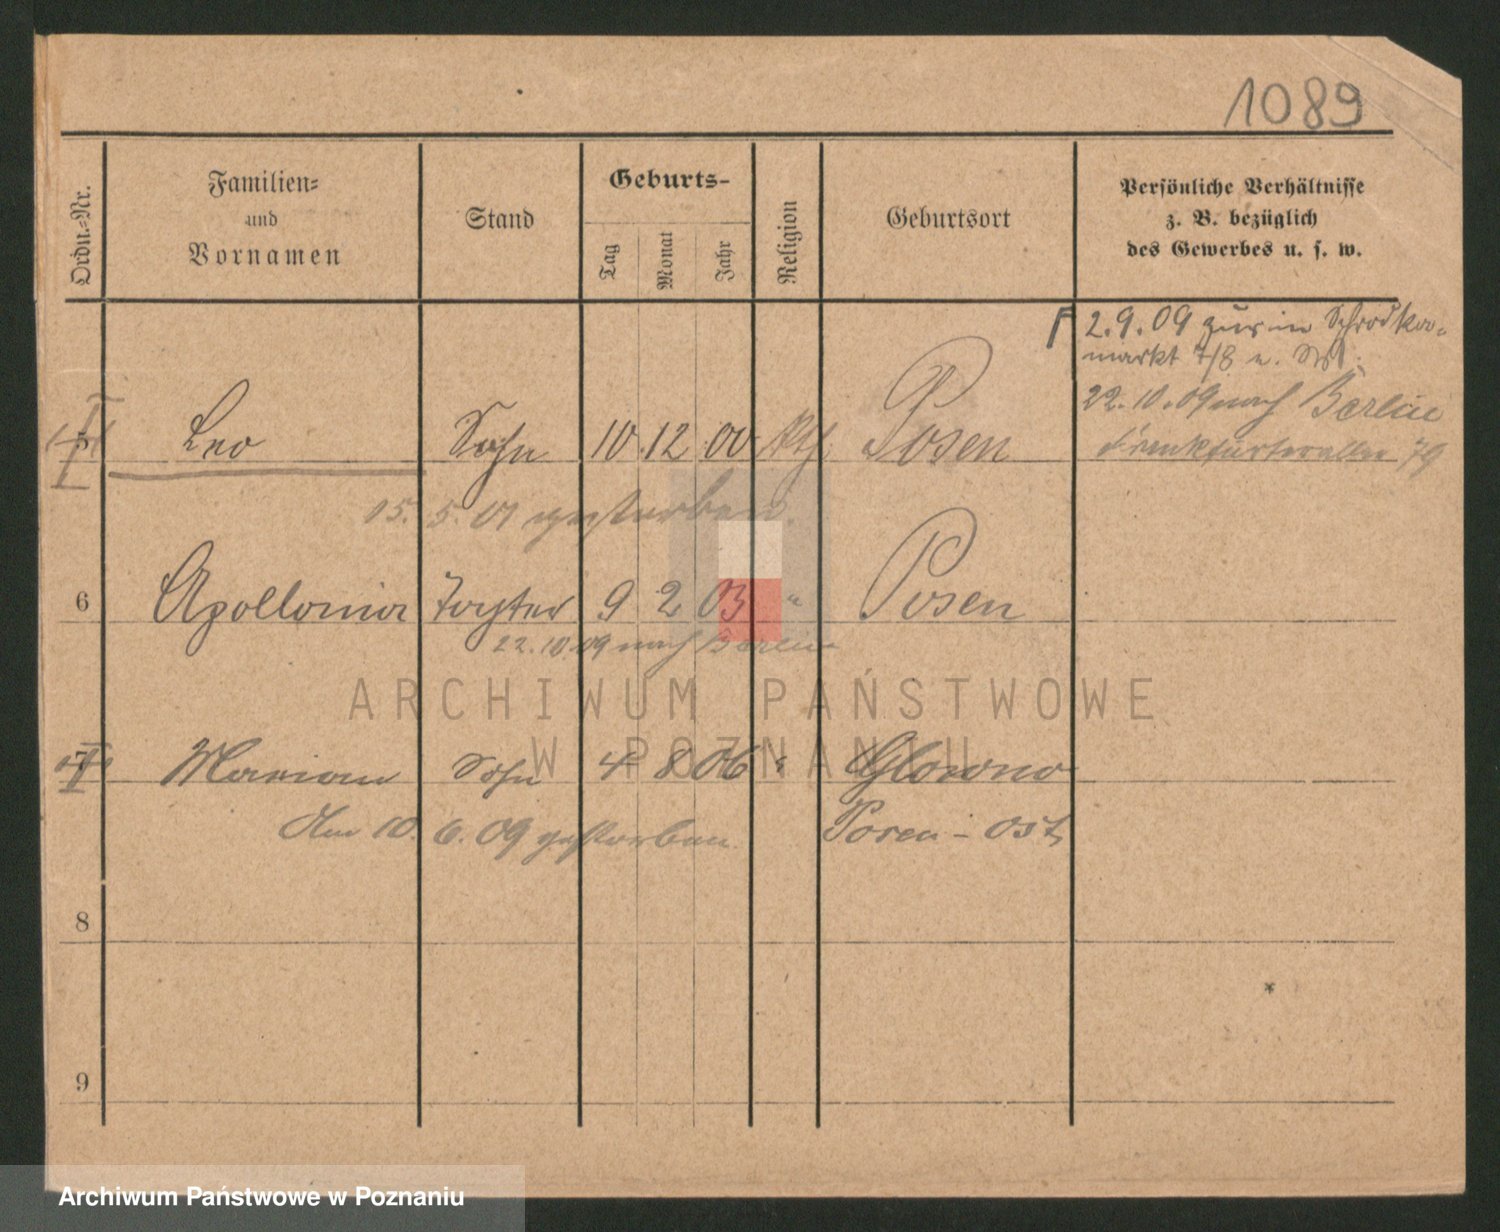 1089
Ordn.-Nr.
Familien-
und
Vornamen
Stand
Geburts-
Tag
Monat
Jahr
Religion
Geburtsort
Persönliche Verhältnisse
z. B. bezüglich
des Gewerbes u. s. w.
2.9.09 Schrodka-
markt 7/8
22.10.09 nach Berlin
Frankfurterallee 79
5 Leo Sohn 10 12 00 kth Posen
15. 5. 01 gestorben.
6 Apollonia Tochter 9 2 03 " Posen
22.10.09 nach Berlin
ARCHIWUM PAŃSTWOWE
W POZNANIU
7 Marian Sohn 4 8 06 " Glowno
Am 10. 6. 09 gestorben. Posen-Ost
8
9
Archiwum Państwowe w Poznaniu